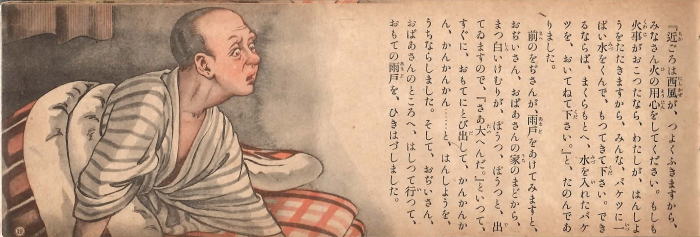 『近ごろは西風が、つよくふきますから、
みなさん火の用心をしてください。もしも
火事がおこつたなら、わたしが、はんしよ
うをたたきますから、みんな、バケツに一
ぱい水をくんで、もつてきて下さい。でき
るならば、まくらもとへ、水を入れたバケ
ツを、おいてねて下さい。』と、たのんであ
りました。
前のをぢさんが、雨戸をあけてみますと、
おぢいさん、おばあさんの家のまどから、
まつ白いけむりが、ぽうつ、ぽうつと、出
てゐますので、『さあ大へんだ。』といつて、
すぐに、おもてにとび出して、かんかんか
ん、かんかんかん……と、はんしようを、
うちならしました。そして、おぢいさん、
おばあさんのところへ、はしつて行つて、
おもての雨戸を、ひきはづしました。